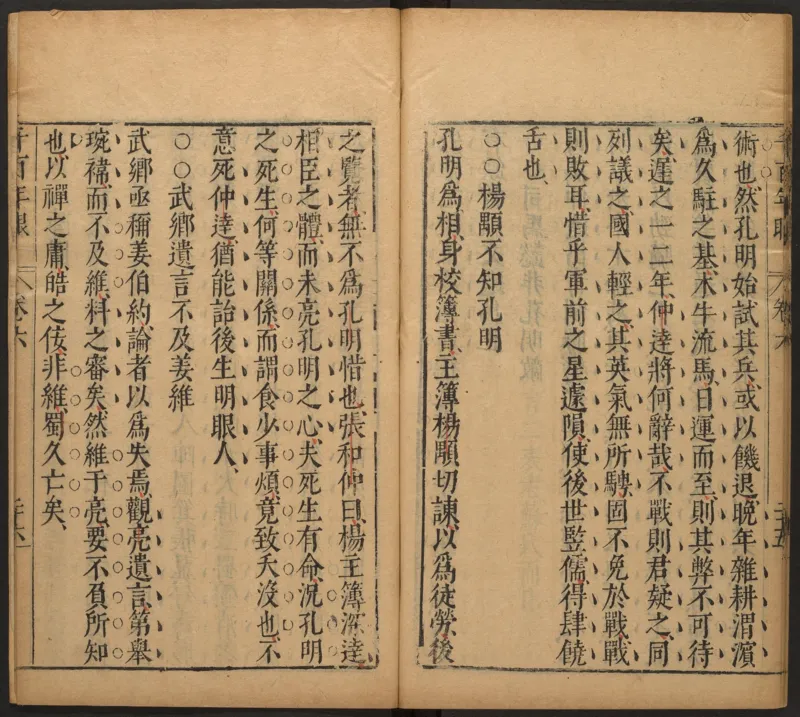 術也然孔明始試其兵或以饑退晚年雜耕渭濱
爲久駐之基木牛流馬日運而至則其弊不可待
矣遲之一二年仲達將何辭哉不戰則君疑之同
列議之國人輕之其英氣無所騁固不免於戰戰
則敗耳惜乎軍前之星遽隕使後世監儒得肆饒
舌也
○○楊顒不知孔明
孔明爲相身校簿書主簿楊顒切諫以爲徒勞後
之覽者無不爲孔明惜也張和仲曰楊主簿深達
相臣之體而未亮孔明之心夫死生有命況孔明
之死生何等關係而謂食少事煩竟致夭沒也不
意死仲達猶能詒後生明眼人
○○武鄉遺言不及姜維
武鄉亟稱姜伯約論者以爲失焉觀亮遺言第舉
琬禕而不及維料之審矣然維于亮要不負所知
也以禪之庸皓之佞非維蜀久亡矣
千百年眼
卷六
二十六